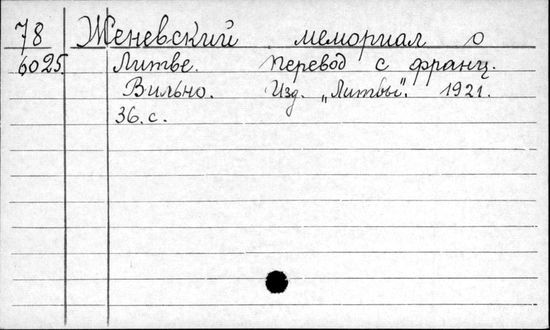 78 Женевский мемориал о
6025. Литве. Перевод с франц.
Вильно. Изд. „Литвы". 1921.
36.с.